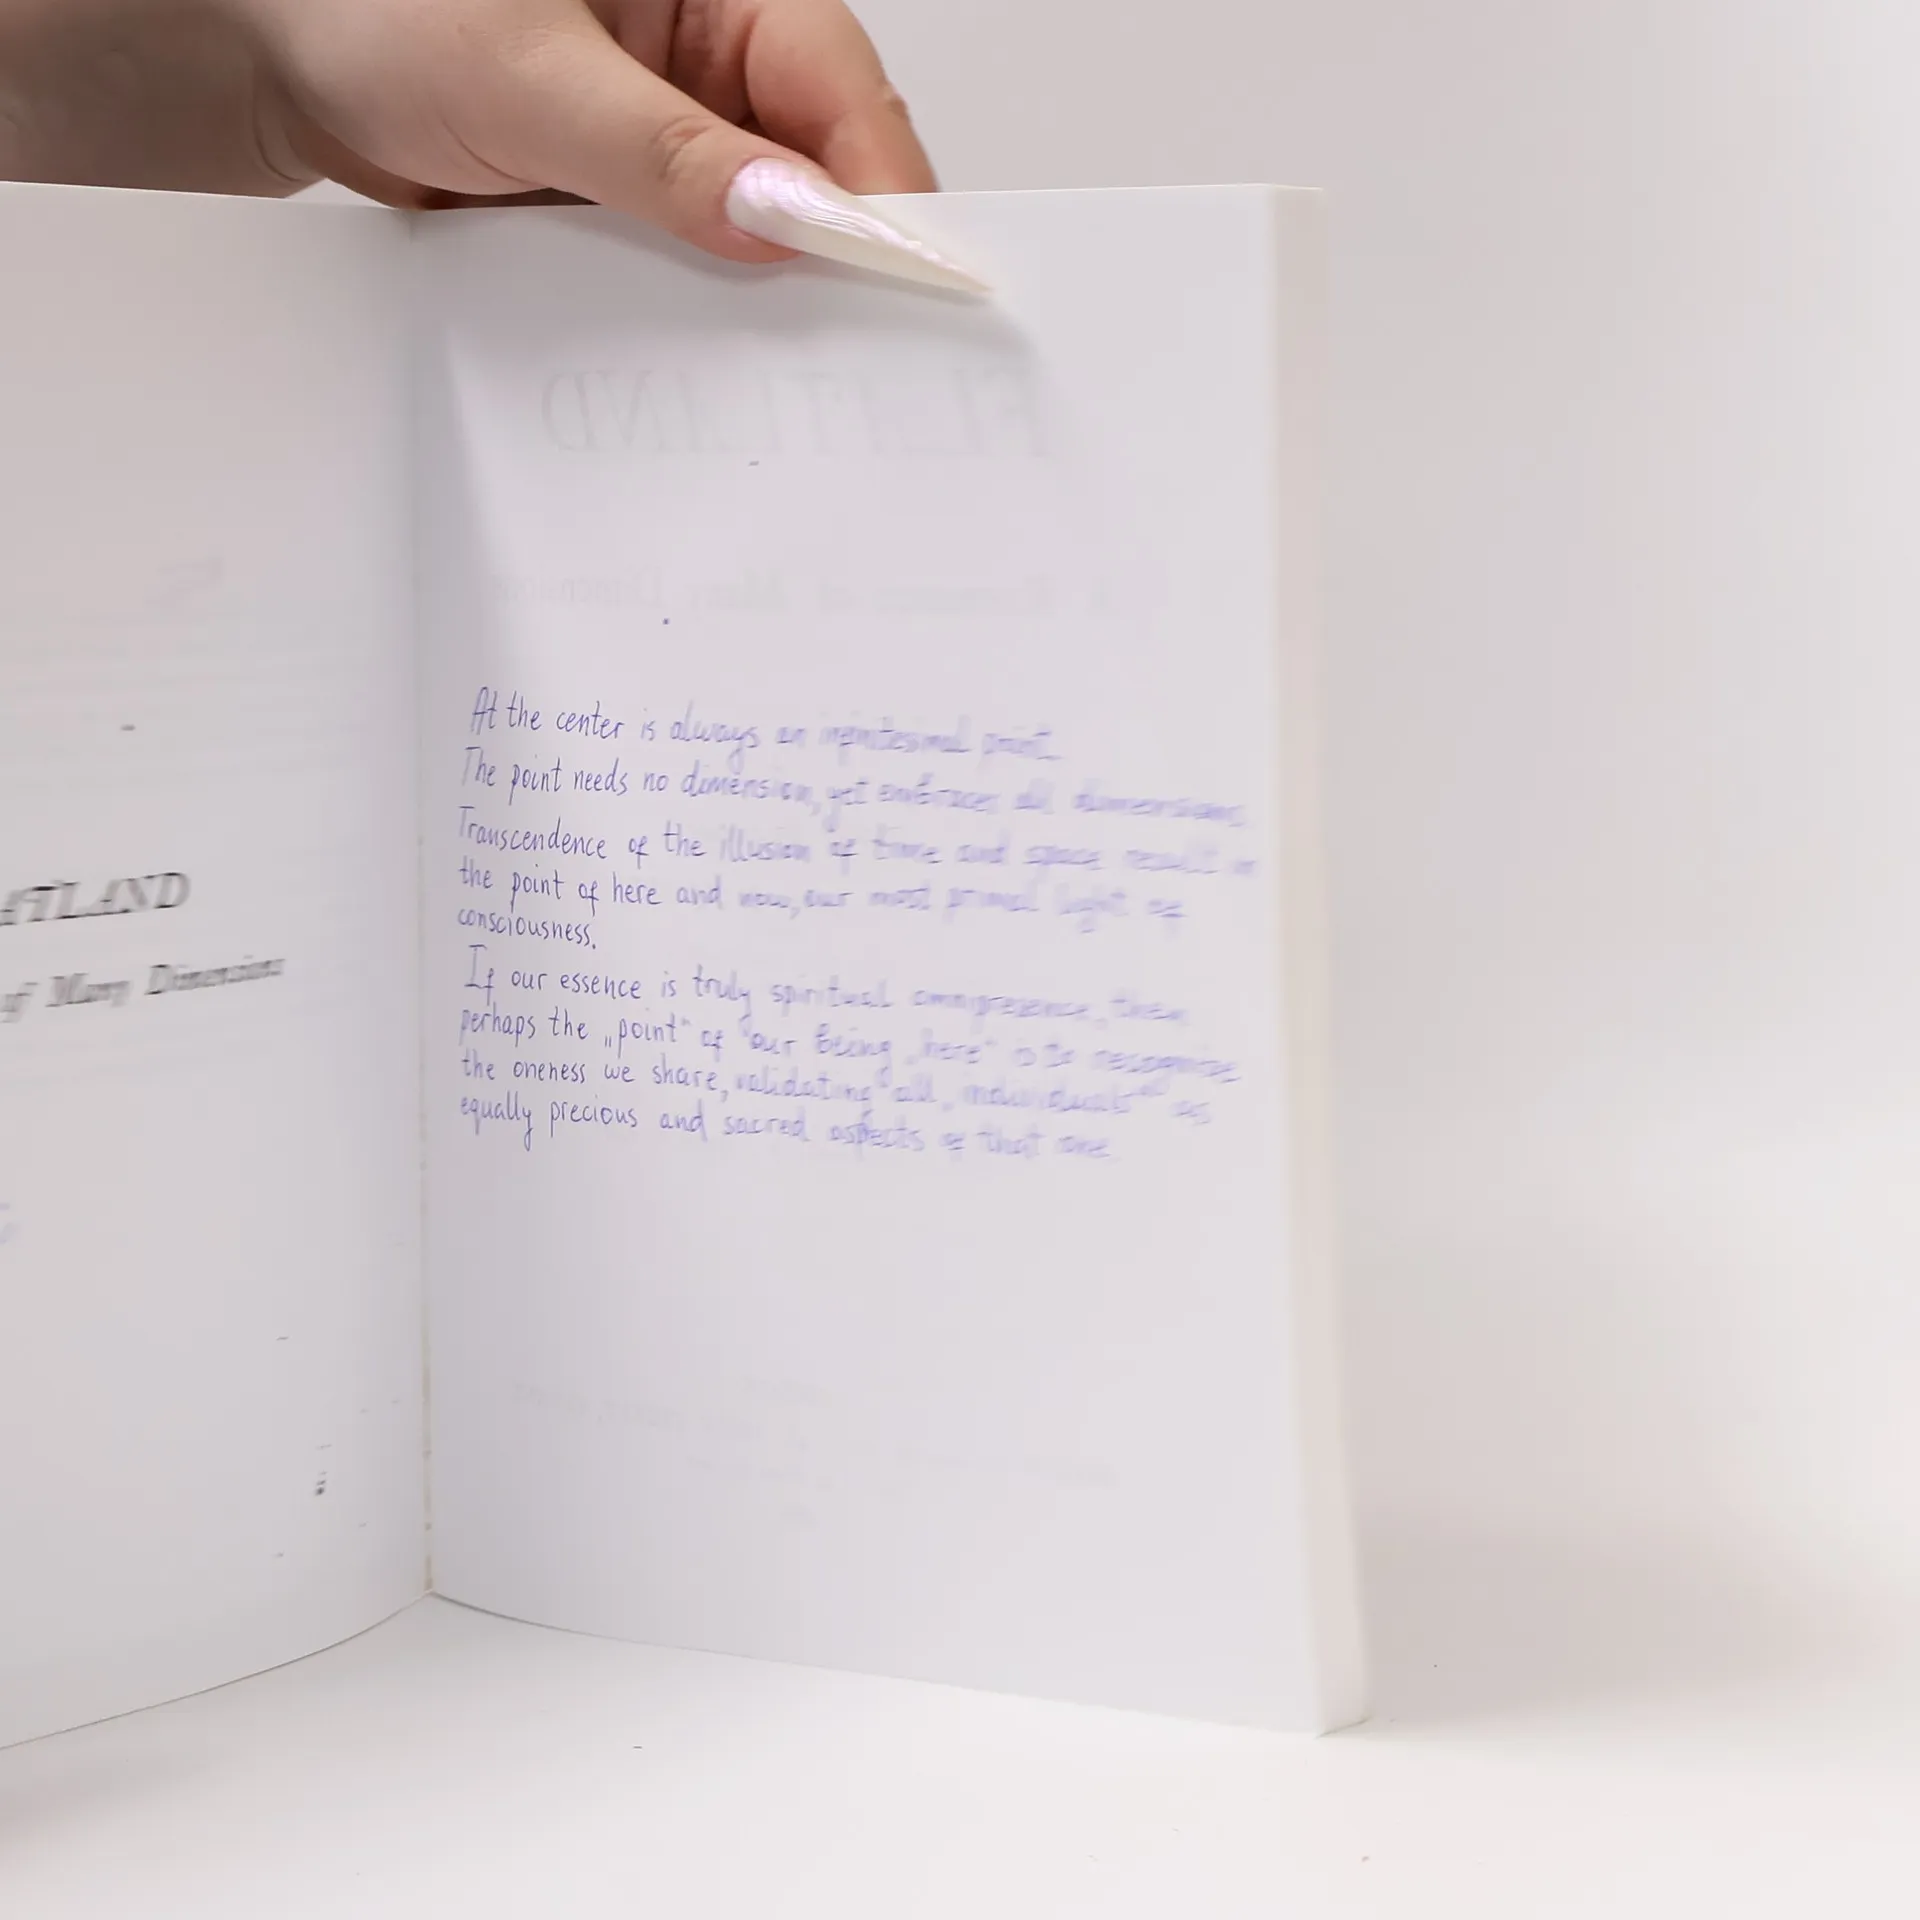 ATLAND
of Many Dimensions
FLATLAND
At the center is always an infinitesimal point.
The point needs no dimension, yet embraces all dimensions.
Transcendence of the illusion of time and space result in
the point of here and now, our most primal light of
consciousness.
If our essence is truly spiritual omnipresence, then
perhaps the „point" of "our being „here" is to recognize
the oneness we share, validating all „individuals" as
equally precious and sacred aspects of that one.